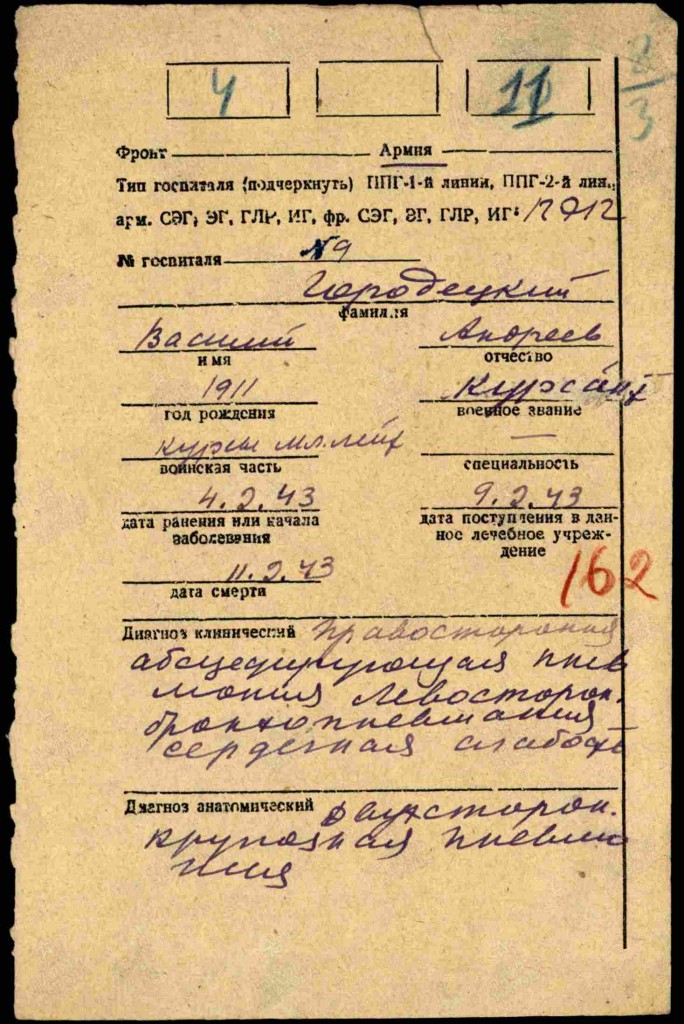 4 11
Фронт Армия
Тип госпиталя (подчеркнуть) ППГ-1-й линии, ППГ-2-й лин.,
арм. СЭГ, ЭГ, ГЛР, ИГ, фр. СЭГ, ЭГ, ГЛР, ИГ:
№ госпиталя N9
Городецкий
фамилия
Василий Андреев
имя отчество
1911 Курсант
год рождения военное звание
курсы мл. лейт —
воинская часть специальность
4.2.43 9.2.43
дата ранения или начала заболевания дата поступления в данное лечебное учреждение
11.2.43
дата смерти
162
Диагноз клинический Правостороняя
абсцедирующая пнев
мония левосторон.
бронхопневмония
сердечная слабость
Диагноз анатомический двухсторон.
крупозная пневмо
ния